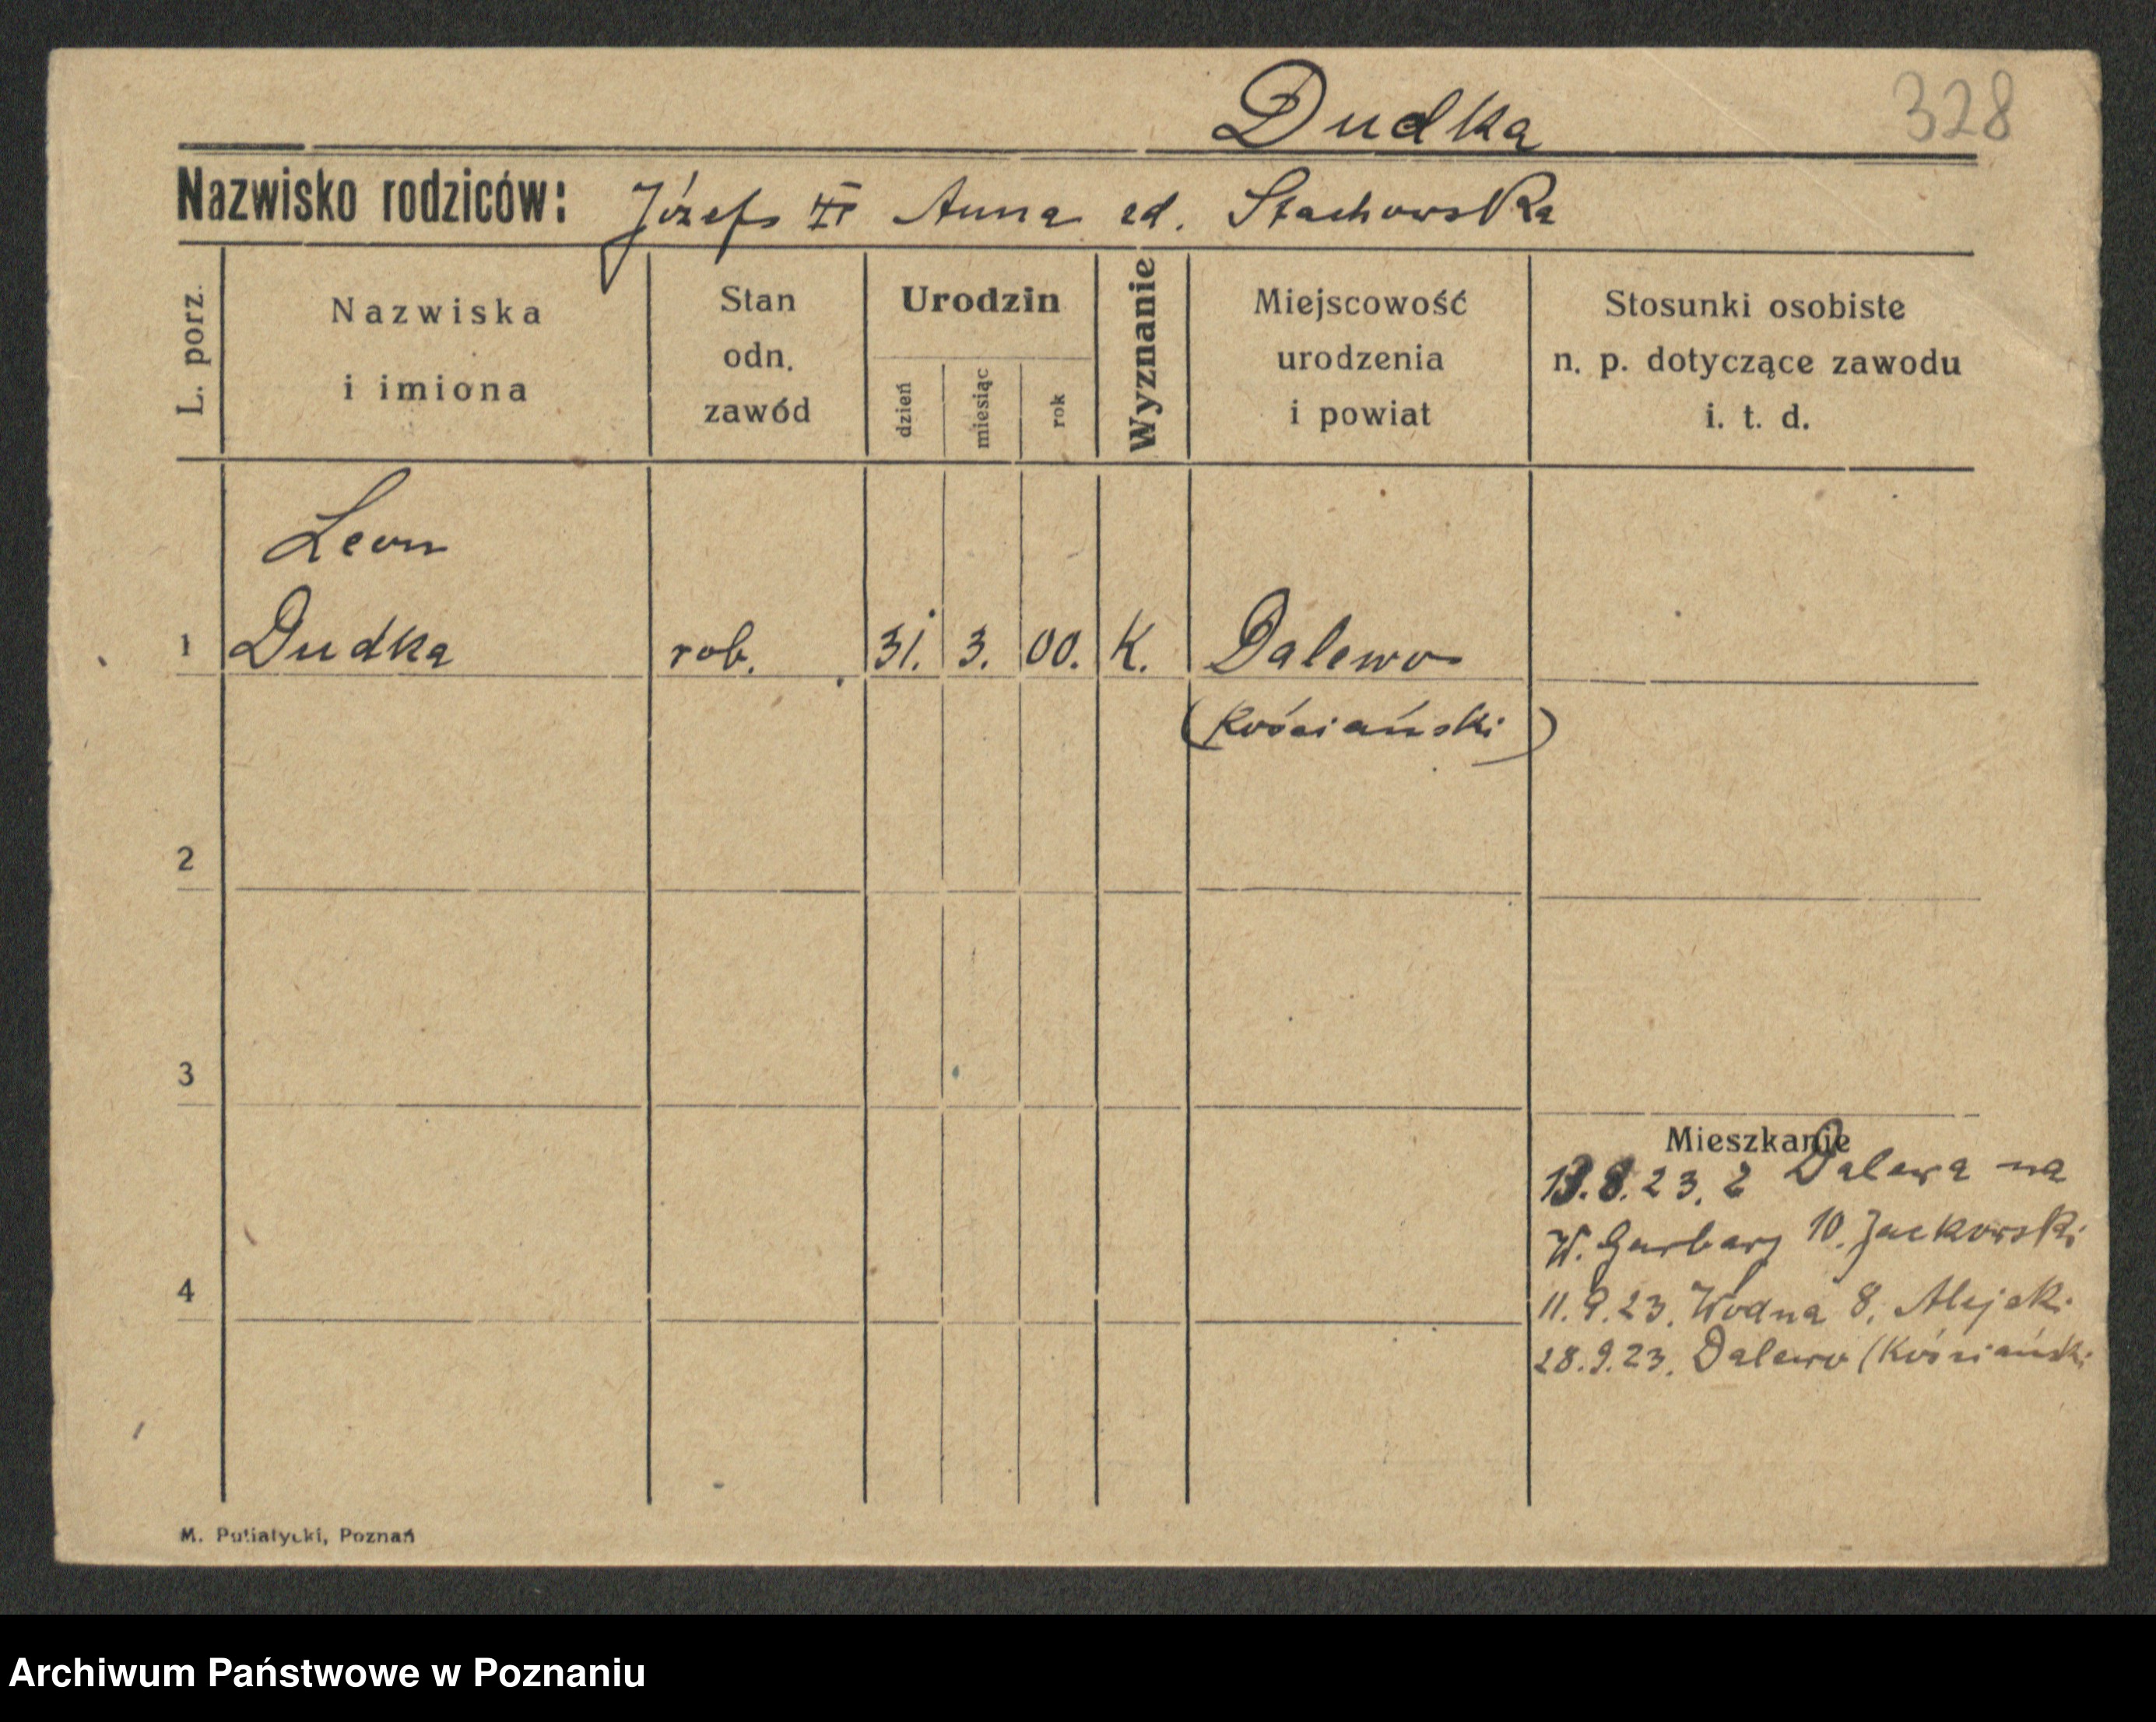 Dudka
328
Nazwisko rodziców: Józef Anna Stachowska
L. porz.
Nazwiska
i imiona
Stan
odn.
zawód
Urodzin
dzień
miesiąc
rok
Wyznanie
Miejscowość
urodzenia
i powiat
Stosunki osobiste
n. p. dotyczące zawodu
i. t. d.
Leon
1 Dudka rob. 31. 3. 00. K. Dalewo
(Kościański)
2
3
Mieszkanie
13.8.23. z Dalewa na
W. Garbary 10. Jackowski
4
11.9.23. Wodna 8.
28.9.23. Dalewo (Kościański
M. Putiatycki, Poznań
Archiwum Państwowe w Poznaniu